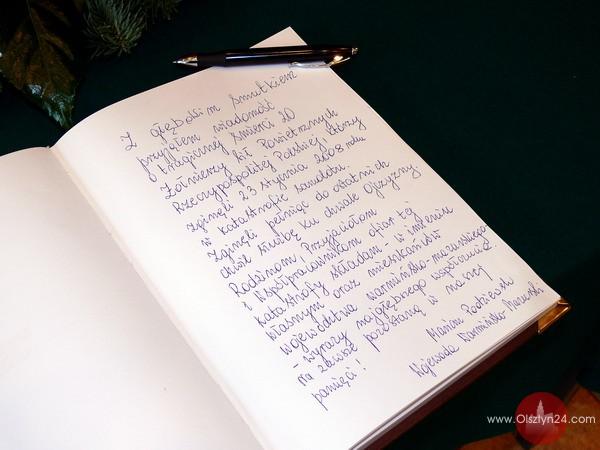 Z głębokim smutkiem
przyjąłem wiadomość
o tragicznej śmierci 20
Żołnierzy Sił Powietrznych
Rzeczypospolitej Polskiej, którzy
zginęli 23 stycznia 2008 roku
w katastrofie samolotu.
Zginęli pełniąc do ostatnich
chwil służbę ku chwale Ojczyzny.
Rodzinom, Przyjaciołom
i Współpracownikom ofiar tej
katastrofy składam - w imieniu
własnym oraz mieszkańców
województwa warmińsko-mazurskiego
- wyrazy najgłębszego współczucia!
Na zawsze pozostaną w naszej
pamięci!
Marian Podziewski
Wojewoda Warmińsko-Mazurski
www.Olsztyn24.com